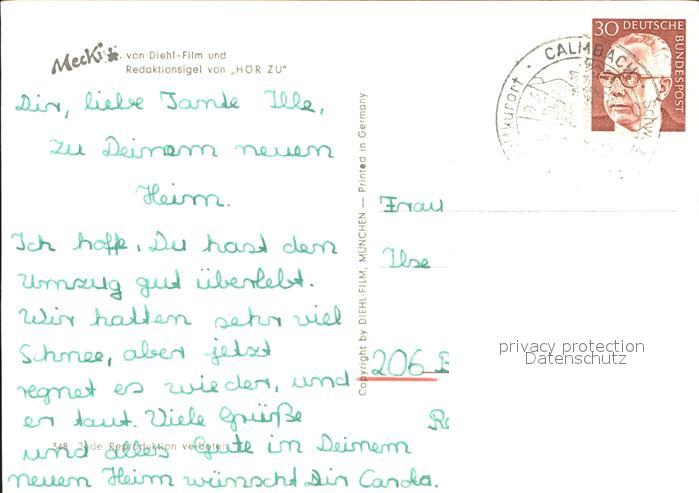 Mecki von Diehl-Film und
Redaktionsigel von „HÖR ZU"
30 DEUTSCHE BUNDESPOST
CALMBACH
Dir, liebe Tante Ille,
zu Deinem neuen
Heim.
Ich hoffe, Du hast den
Umzug gut überlebt.
Wir hatten sehr viel
Schnee, aber jetzt
regnet es wieder, und
er taut. Viele Grüße
und alles Gute in Deinem
neuen Heim wünscht Dir Carola.
348 Jede Reproduktion verboten
Copyright by DIEHL-FILM, MÜNCHEN — Printed in Germany
Frau
Ilse
206
privacy protection
Datenschutz